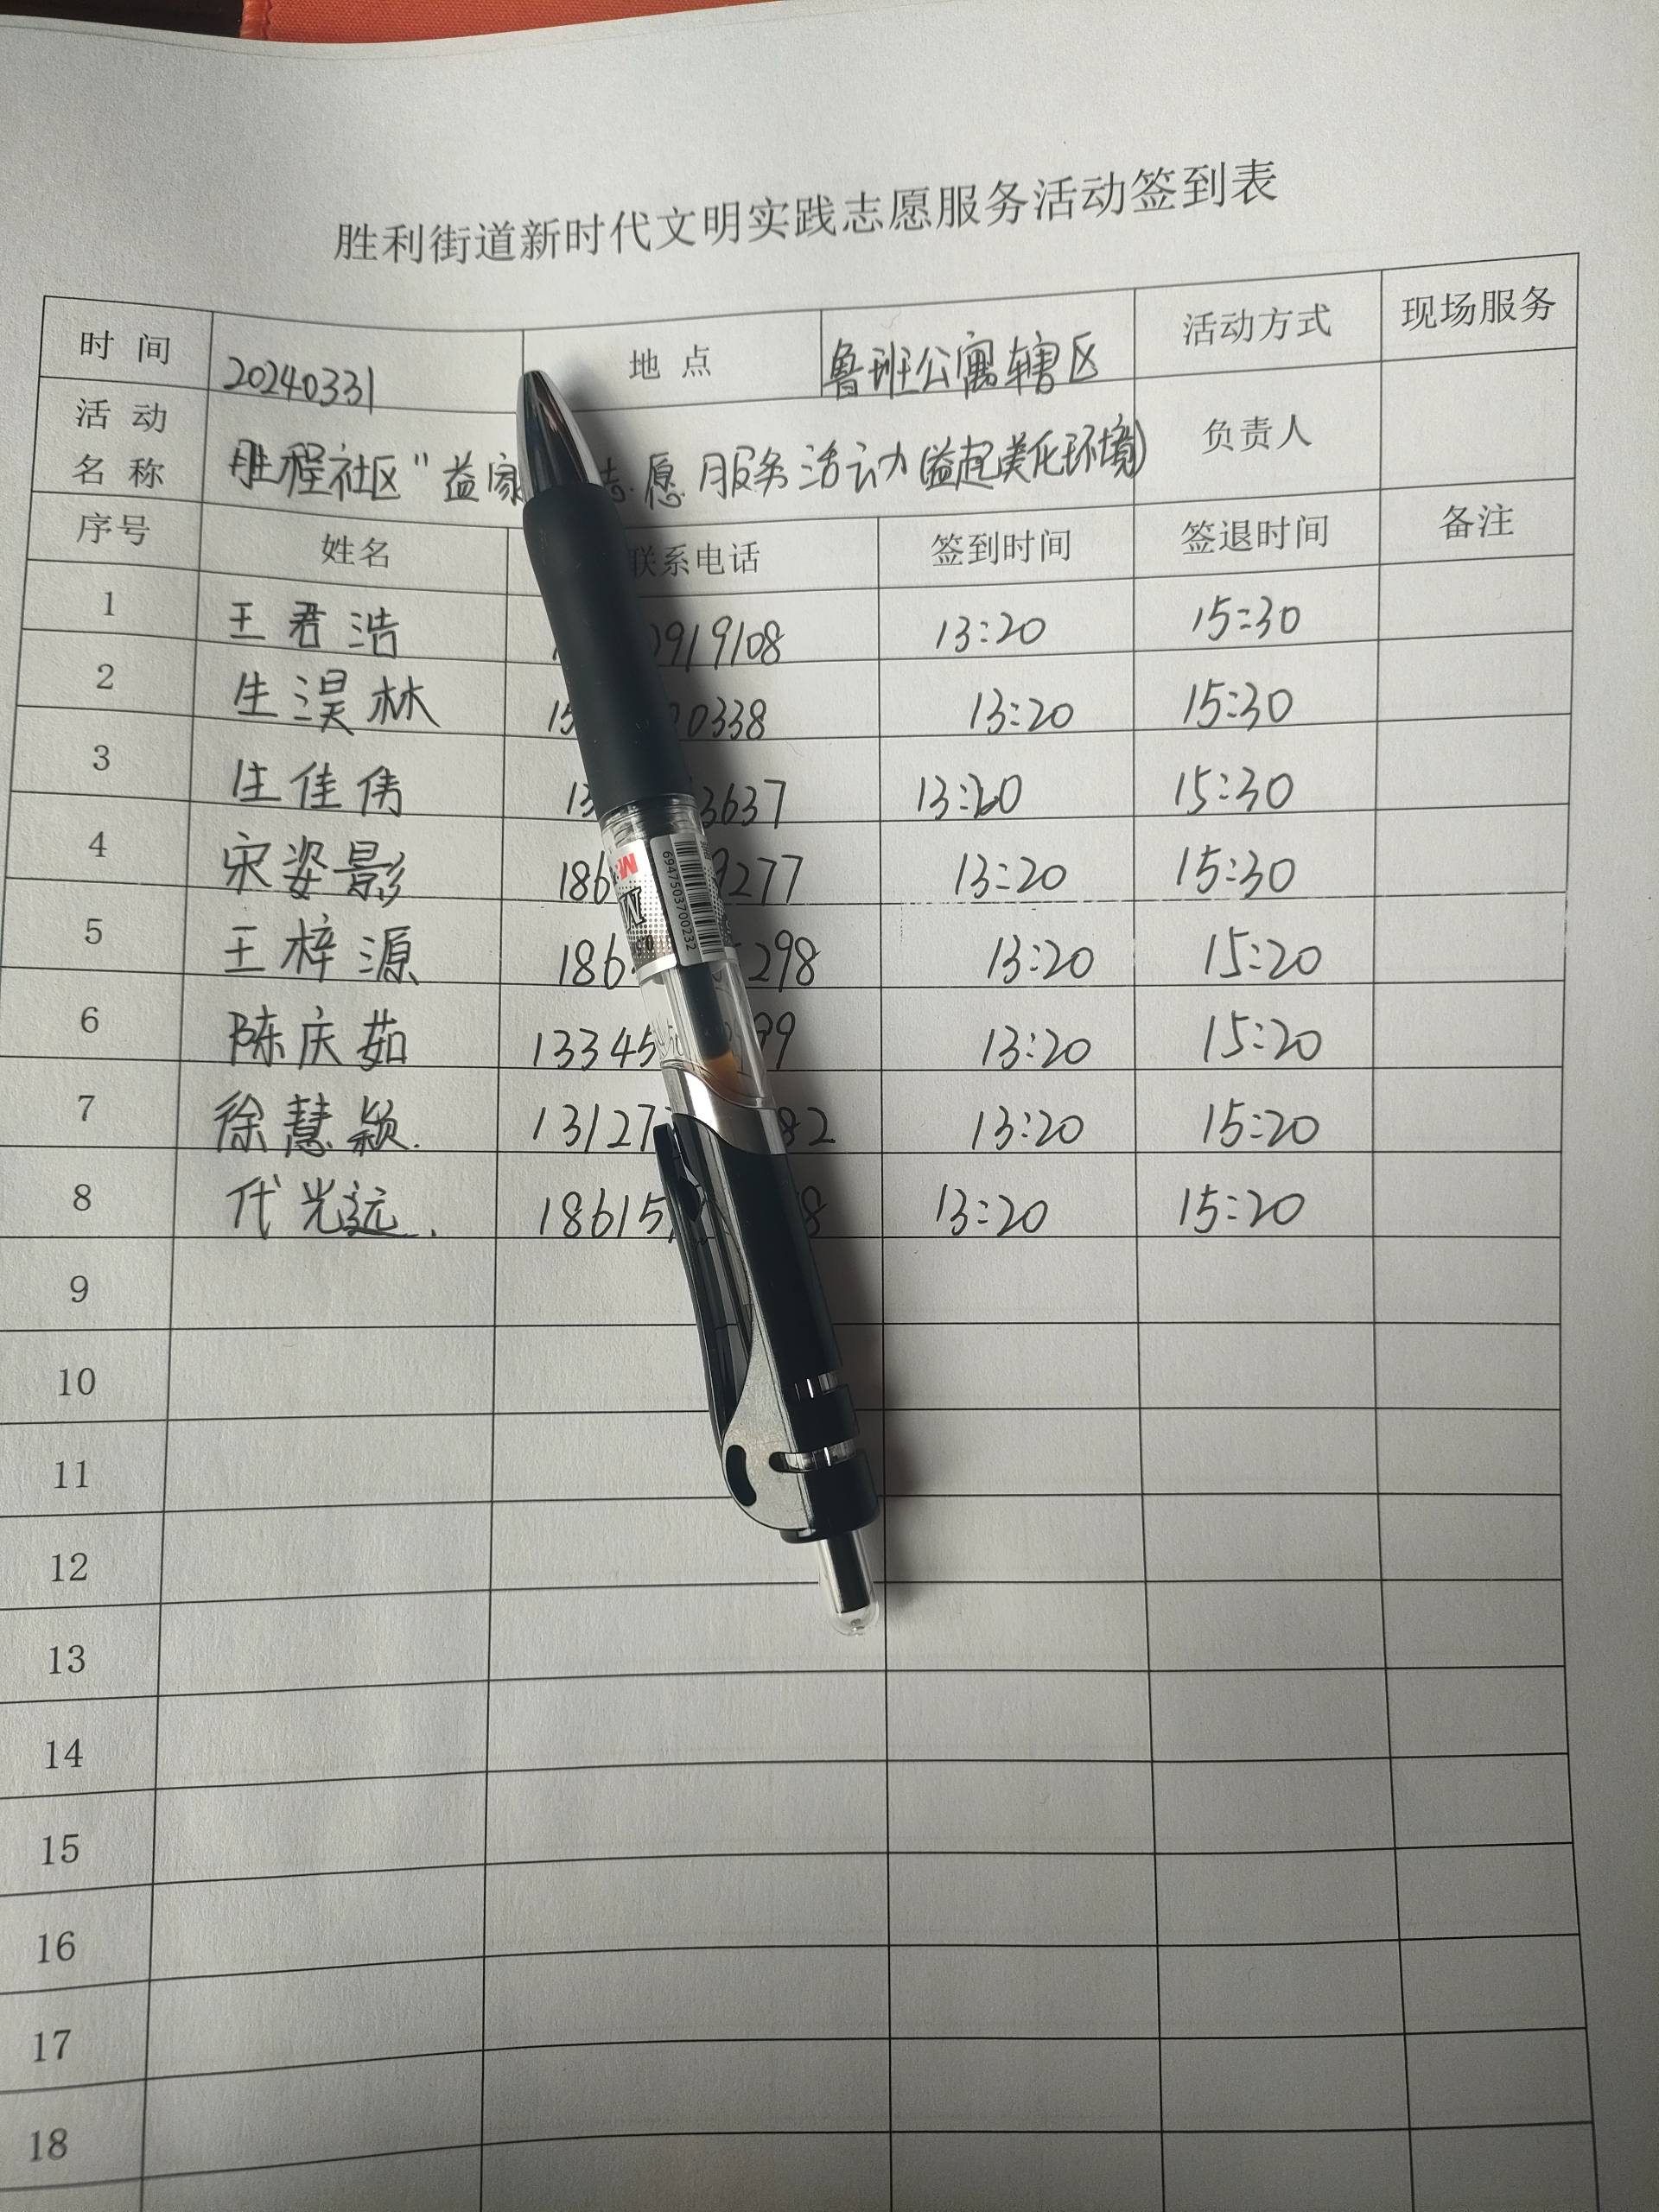 胜利街道新时代文明实践志愿服务活动签到表
时 间 20240331 地 点 鲁班公寓辖区 活动方式 现场服务
活 动 名 称 胜程社区"益家 志愿服务活动(益起美化环境) 负责人
序号 姓名 联系电话 签到时间 签退时间 备注
1 王君浩 2919108 13:20 15:30
2 生淏林 15 20338 13:20 15:30
3 生佳伟 13 3637 13:20 15:30
4 宋姿影 186 9277 13:20 15:30
5 王梓源 186 298 13:20 15:20
6 陈庆茹 13345 99 13:20 15:20
7 徐慧颖. 13127 82 13:20 15:20
8 代光远. 18615 8 13:20 15:20
9
10
11
12
13
14
15
16
17
18
6947503700232